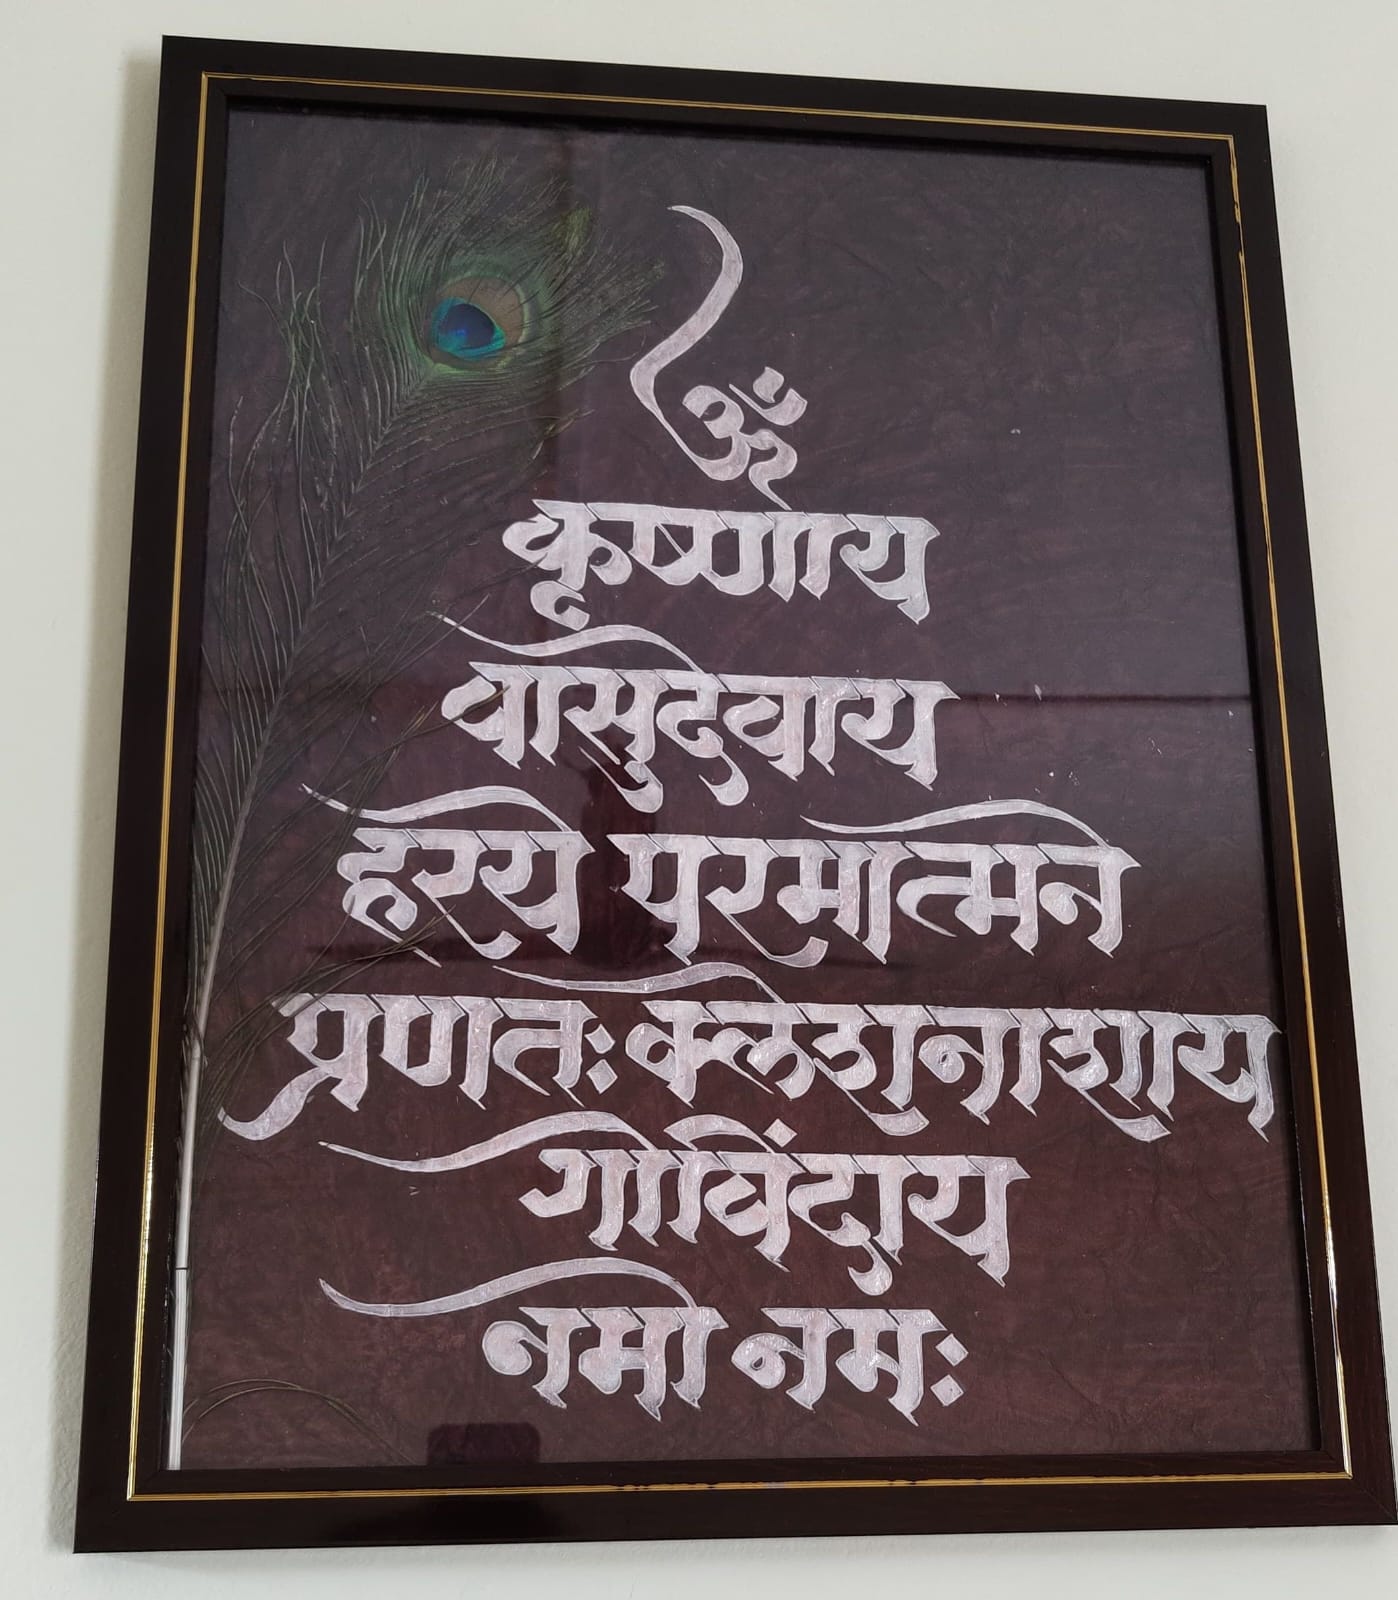 ॐ
कृष्णाय
वासुदेवाय
हरये परमात्मने
प्रणतः क्लेशनाशाय
गोविंदाय
नमो नमः